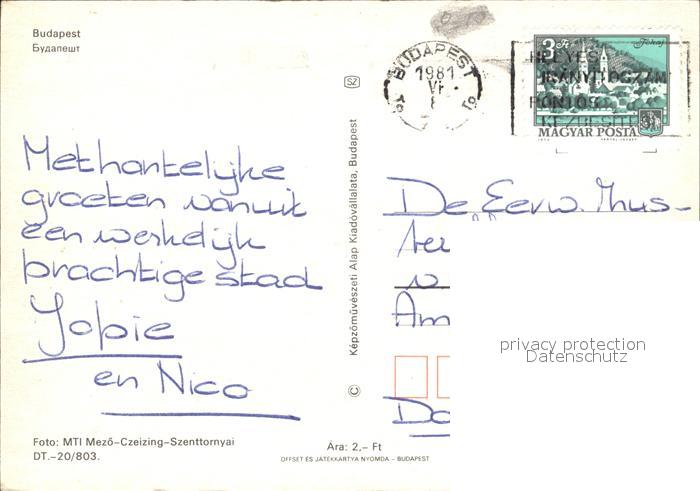 Budapest
Будапешт
Met hartelijke
groeten vanuit
een werkelijk
prachtige stad
Jopie
en Nico
Foto: MTI Mező–Czeizing–Szenttornyai
DT.–20/803.
Ára: 2,– Ft
OFFSET ÉS JÁTÉKKÁRTYA NYOMDA – BUDAPEST
SZ
Képzőművészeti Alap Kiadóvállalata, Budapest
©
BUDAPEST
1981
VI
8
3 Ft
Tokaj
HELYES
IRÁNYÍTÓSZÁM
PONTOS
KÉZBESÍTÉS
MAGYAR POSTA
De Eerw. Zus-
ter
v
Am
Do
privacy protection
Datenschutz